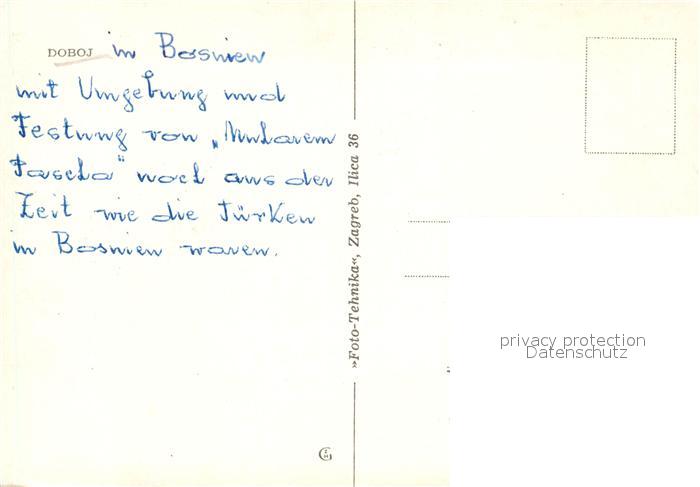 DOBOJ in Bosnien
mit Umgebung und
Festung von „Mularem
Pascha" noch aus der
Zeit wie die Türken
in Bosnien waren.
»Foto-Tehnika«, Zagreb, Ilica 36
privacy protection
Datenschutz